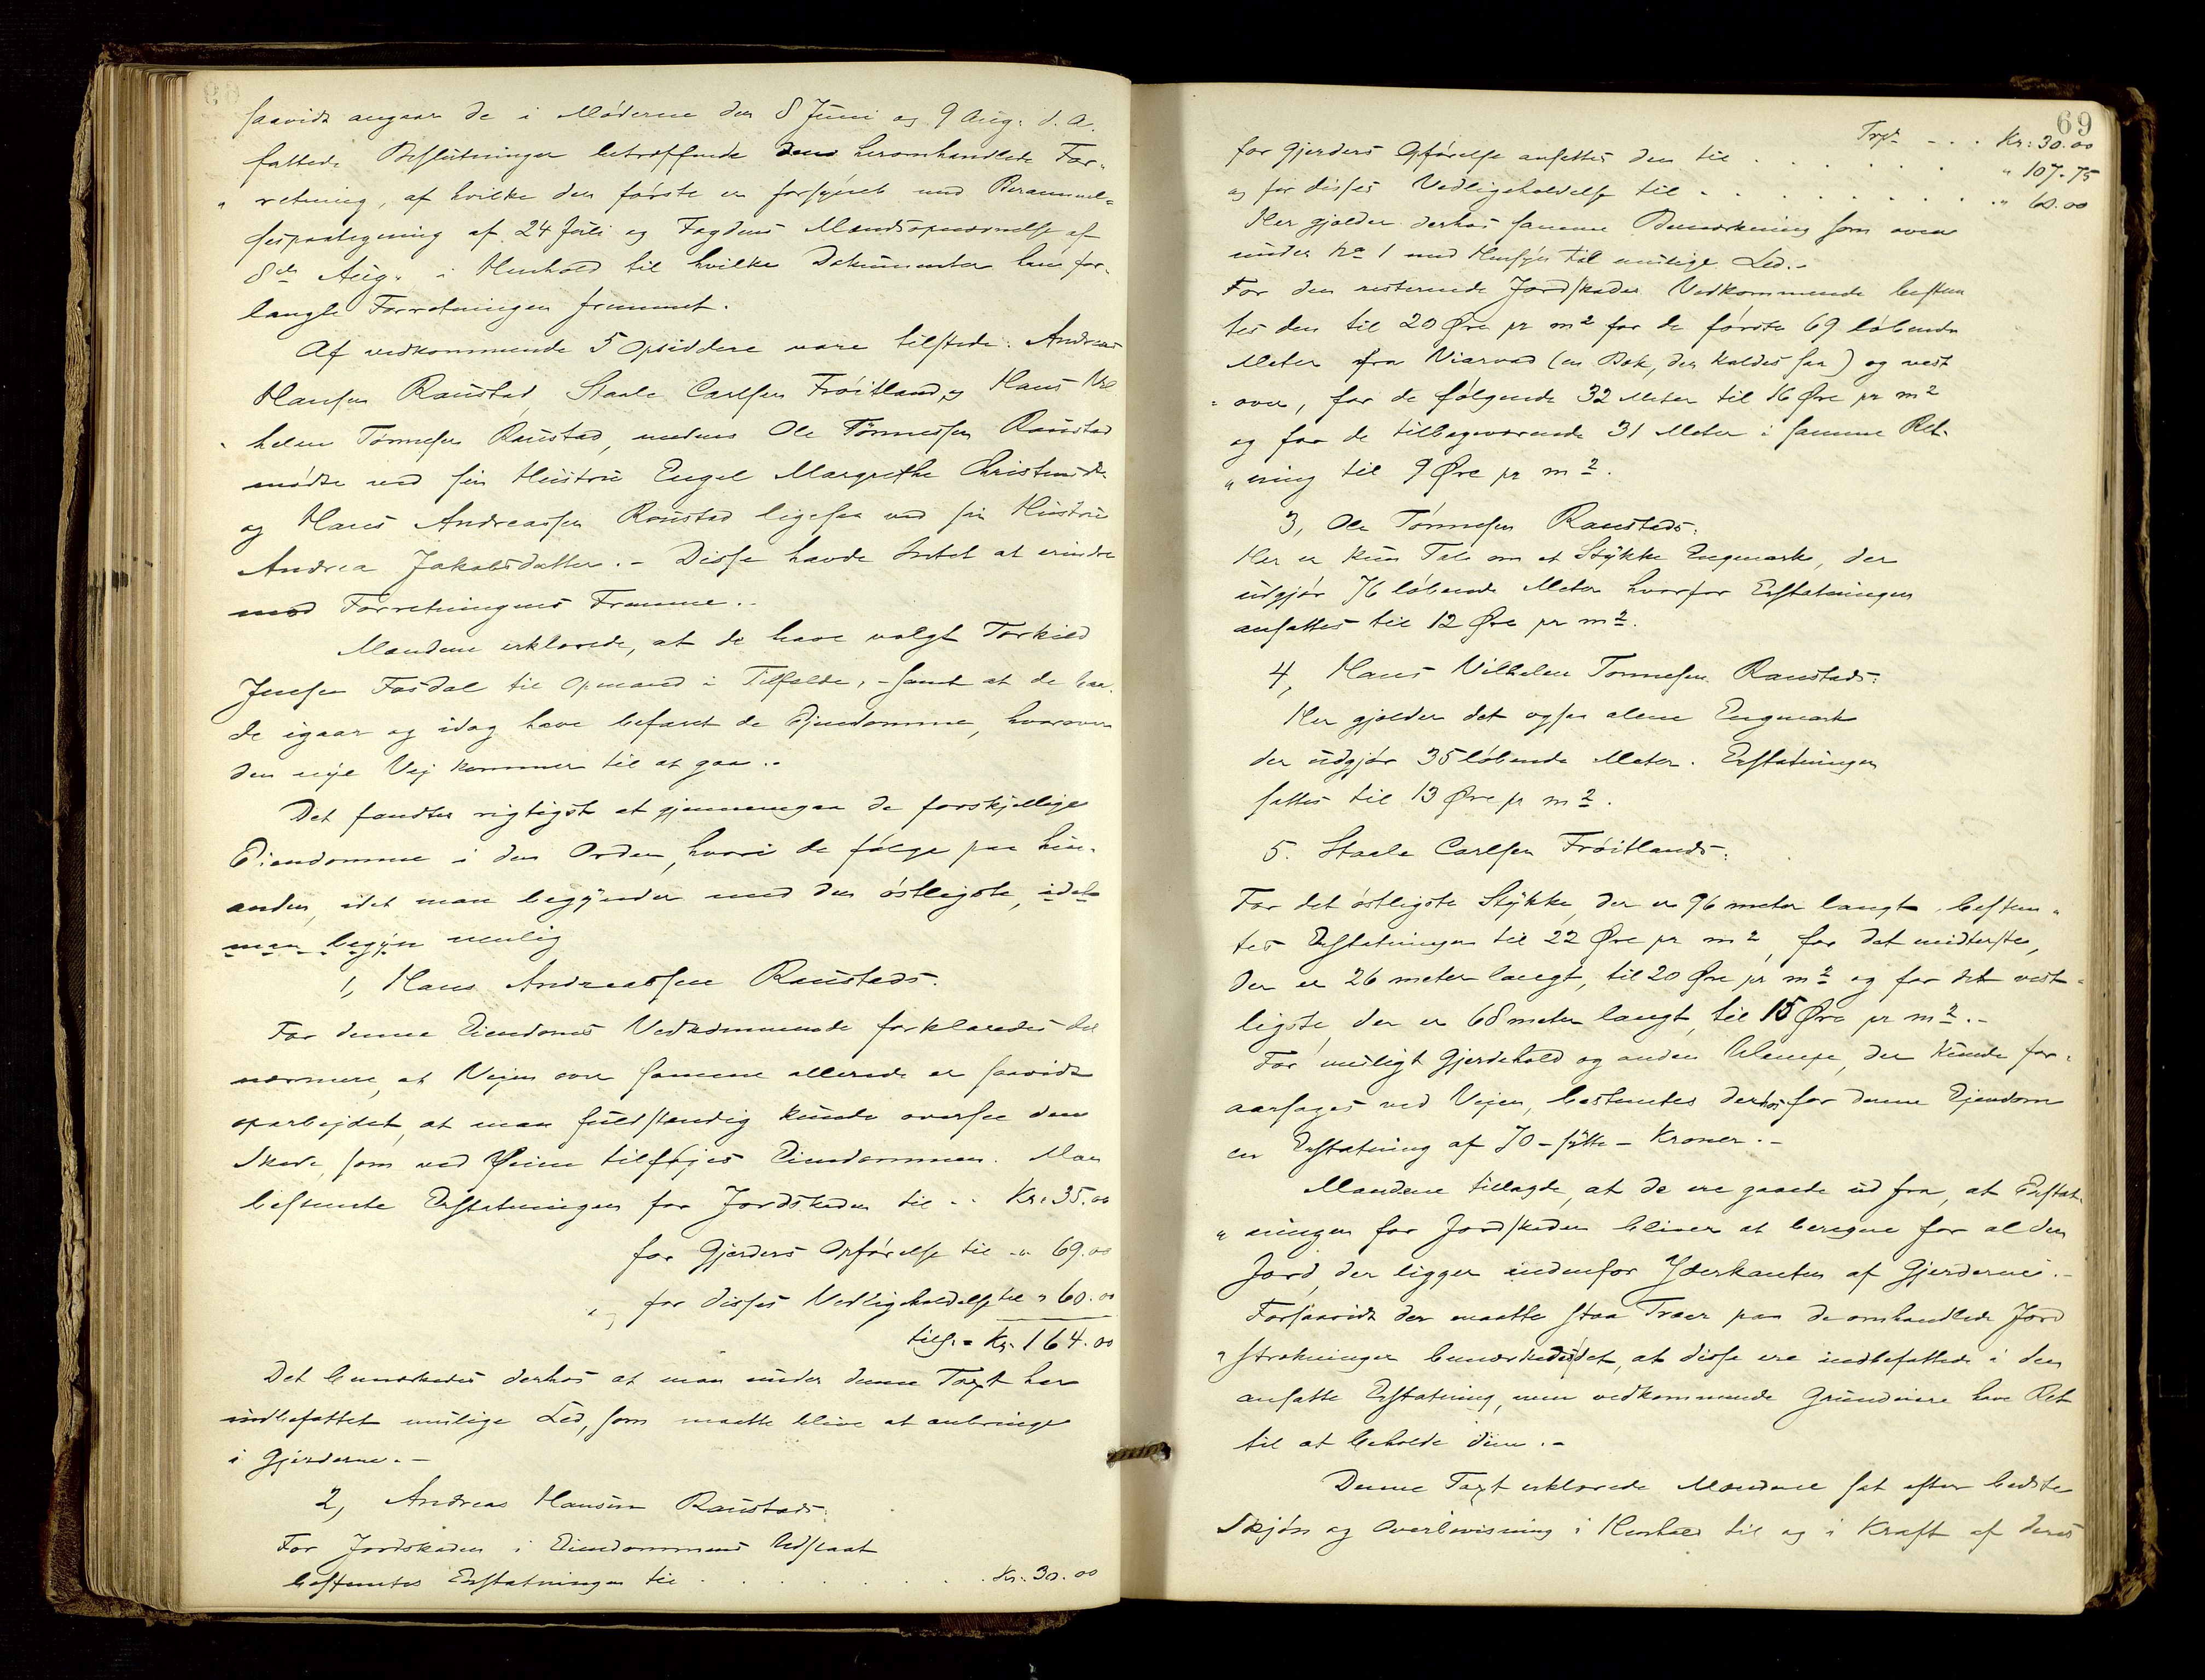 saavidt angaar de i Møderne den 8 Juni og 9 Aug. d. A.
fattede Beslutninger betræffende den heromhandlede For-
„ retning, af hvilke den første er forsynet med Berammel-
sespaategning af 24 Juli og Fogdens Mandsopnævnelse af
8de Aug. i Henhold til hvilke Dokumenter han for-
langte Forretningen fremmet.
Af vedkommende 5 Opsiddere vare tilstede: Andreas
Hansen Raustad, Staale Carlsen Frøitland, og Hans Vil
helm Tønnesen Raustad, medens Ole Tønnessen Raustad
mødte ved sin Hustru Engel Margrethe Christensd.
og Hans Andreassen Raustad ligesaa ved sin Hustru
Andrea Jakobsdatter. - Disse havde Intet at erindre
mod Forretningens Fremme. -
Mændene erklærede, at de have valgt Torkild
Jensen Fosdal til Opmand i Tilfælde, - samt at de baa-
de igaar og idag have befaret de Ejendomme, hvorover
den nye Vej kommer til at gaa. -
Det fandtes rigtigst at gjennemgaa de forskjellige
Eiendomme i den Orden, hvori de følge paa hin-
anden, idet man begynder med den østligste, idet
man begyn nemlig
1, Hans Andreassen Raustads.
For denne Eiendoms Vedkommende forklaredes det
nærmere, at Vejen over samme allerede er saavidt
oparbejdet, at man fuldstændig kunde oversee den
Skade, som ved Veien tilføjes Eiendommen. Man
bestemte Erstatningen for Jordskaden til - - Kr. 35.00
for Gjerders Opførelse til - „ 69.00
og for disses Vedligeholdelse til „ 60.00
tils. - Kr. 164.00
Det bemærkedes derhos at man under denne Taxt har
indbefattet mulige Led, som maatte blive at anbringe
i Gjerderne. -
2, Andreas Hansen Raustads:
For Jordskaden i Eiendommens Udslaat
bestemtes Erstatningen til . . . . . . . Kr. 30.00
69
Trpt - - . Kr: 30.00
for Gjerders Opførelse ansettes den til . . . . . . „ 107.75
og for disses Vedligeholdelse til . . . . . . . . „ 60.00
Her gjælder derhos samme Bemærkning som oven
under No 1 med Hensyn til mulige Led. -
For den resterende Jordskades Vedkommende bestem
tes den til 20 Øre pr m2 for de første 69 løbende
Meter fra Viarvad (en Bæk, der kaldes saa) og vest
over, for de følgende 32 Meter til 16 Øre pr m2
og for de tilbageværende 31 Meter i samme Ret-
„ ning til 9 Øre pr m2.
3, Ole Tønnesen Raustads:
Her er kun Tale om et Stykke Engmark, der
udgjør 76 løbende Meter hvorfor Erstatningen
ansattes til 12 Øre pr m2.
4, Hans Vilhelm Tønnesen Raustads:
Her gjælder det ogsaa alene Engmark
der udgjør 35 løbende Meter. Erstatningen
sattes til 13 Øre pr m2.
5. Staale Carlsen Frøitlands:
For det østligste Stykke, der er 96 meter langt, bestem-
tes Erstatningen til 22 Øre pr m2, for det midterste,
der er 26 meter langt, til 20 Øre pr m2 og for det vest-
ligste, der er 68 meter langt, til 15 Øre pr m2. -
For muligt Gjerdehold og anden Ulempe, der kunde for-
aarsages ved Vejen, bestemtes derhos for denne Ejendom
en Erstatning af 70 - sytti - Kroner. -
Mændene tillagde, at de ere gaaede ud fra, at Erstat-
„ ningen for Jordskaden bliver at beregne for al den
Jord, der ligger indenfor Yderkanten af Gjerderne. -
Forsaavidt der maatte staa Træer paa de omhandlede Jord
„ strækninger bemærkedes det, at disse ere indbefattede i den
ansatte Erstatning, men vedkommende Grundeiere have Ret
til at beholde dem. -
Denne Taxt erklærede Mændene sat efter bedste
Skjøn og Overbevisning i Henhold til og i Kraft af deres